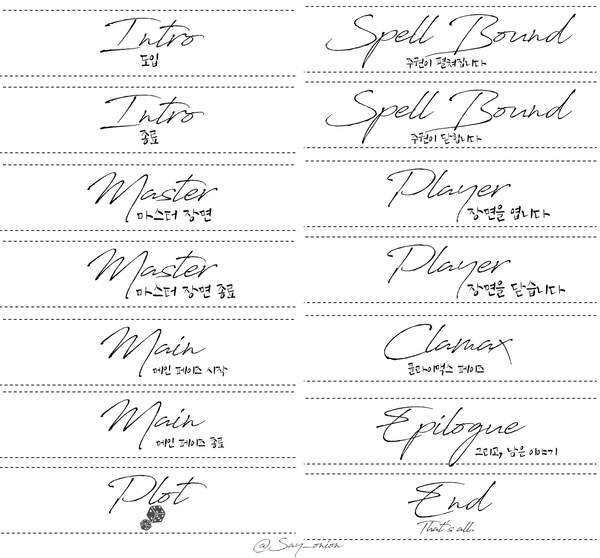 Intro
도입
Intro
종료
Master
마스터 장면
Master
마스터 장면 종료
Main
메인 페이즈 시작
Main
메인 페이즈 종료
Plot
Spell Bound
주헌이 펼쳐집니다
Spell Bound
주헌이 닫힙니다
Player
장면을 엽니다
Player
장면을 닫습니다
Clamax
클라이맥스 페이즈
Epilogue
그리고, 남은 이야기
End
That's all.
@Say_onion